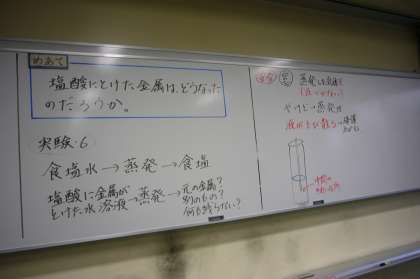 めあて
塩酸にとけた金属は、どうなった
のだろうか。
実験6
食塩水→蒸発→食塩
塩酸に金属が
とけた水溶液→蒸発→元の金属?
別のもの?
何も残らない?
安全
蒸発
やけど→蒸発
液がとび散る→保護